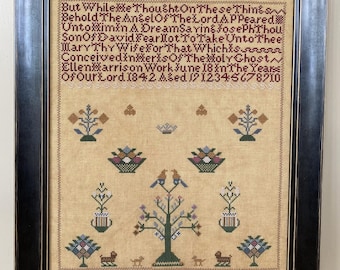 But While He Thought On These Things
Behold The Angel Of The Lord APPeared
Unto Him in A Dream Saying JosePh Thou
Son Of David Fear Not To Take Unto Thee
Mary Thy Wife For That Which is
Conceived in Her is Of The Holy Ghost
Ellen Harrison Work June 18 in The Year
Of Our Lord 1842 Aged 12 1234567 8910